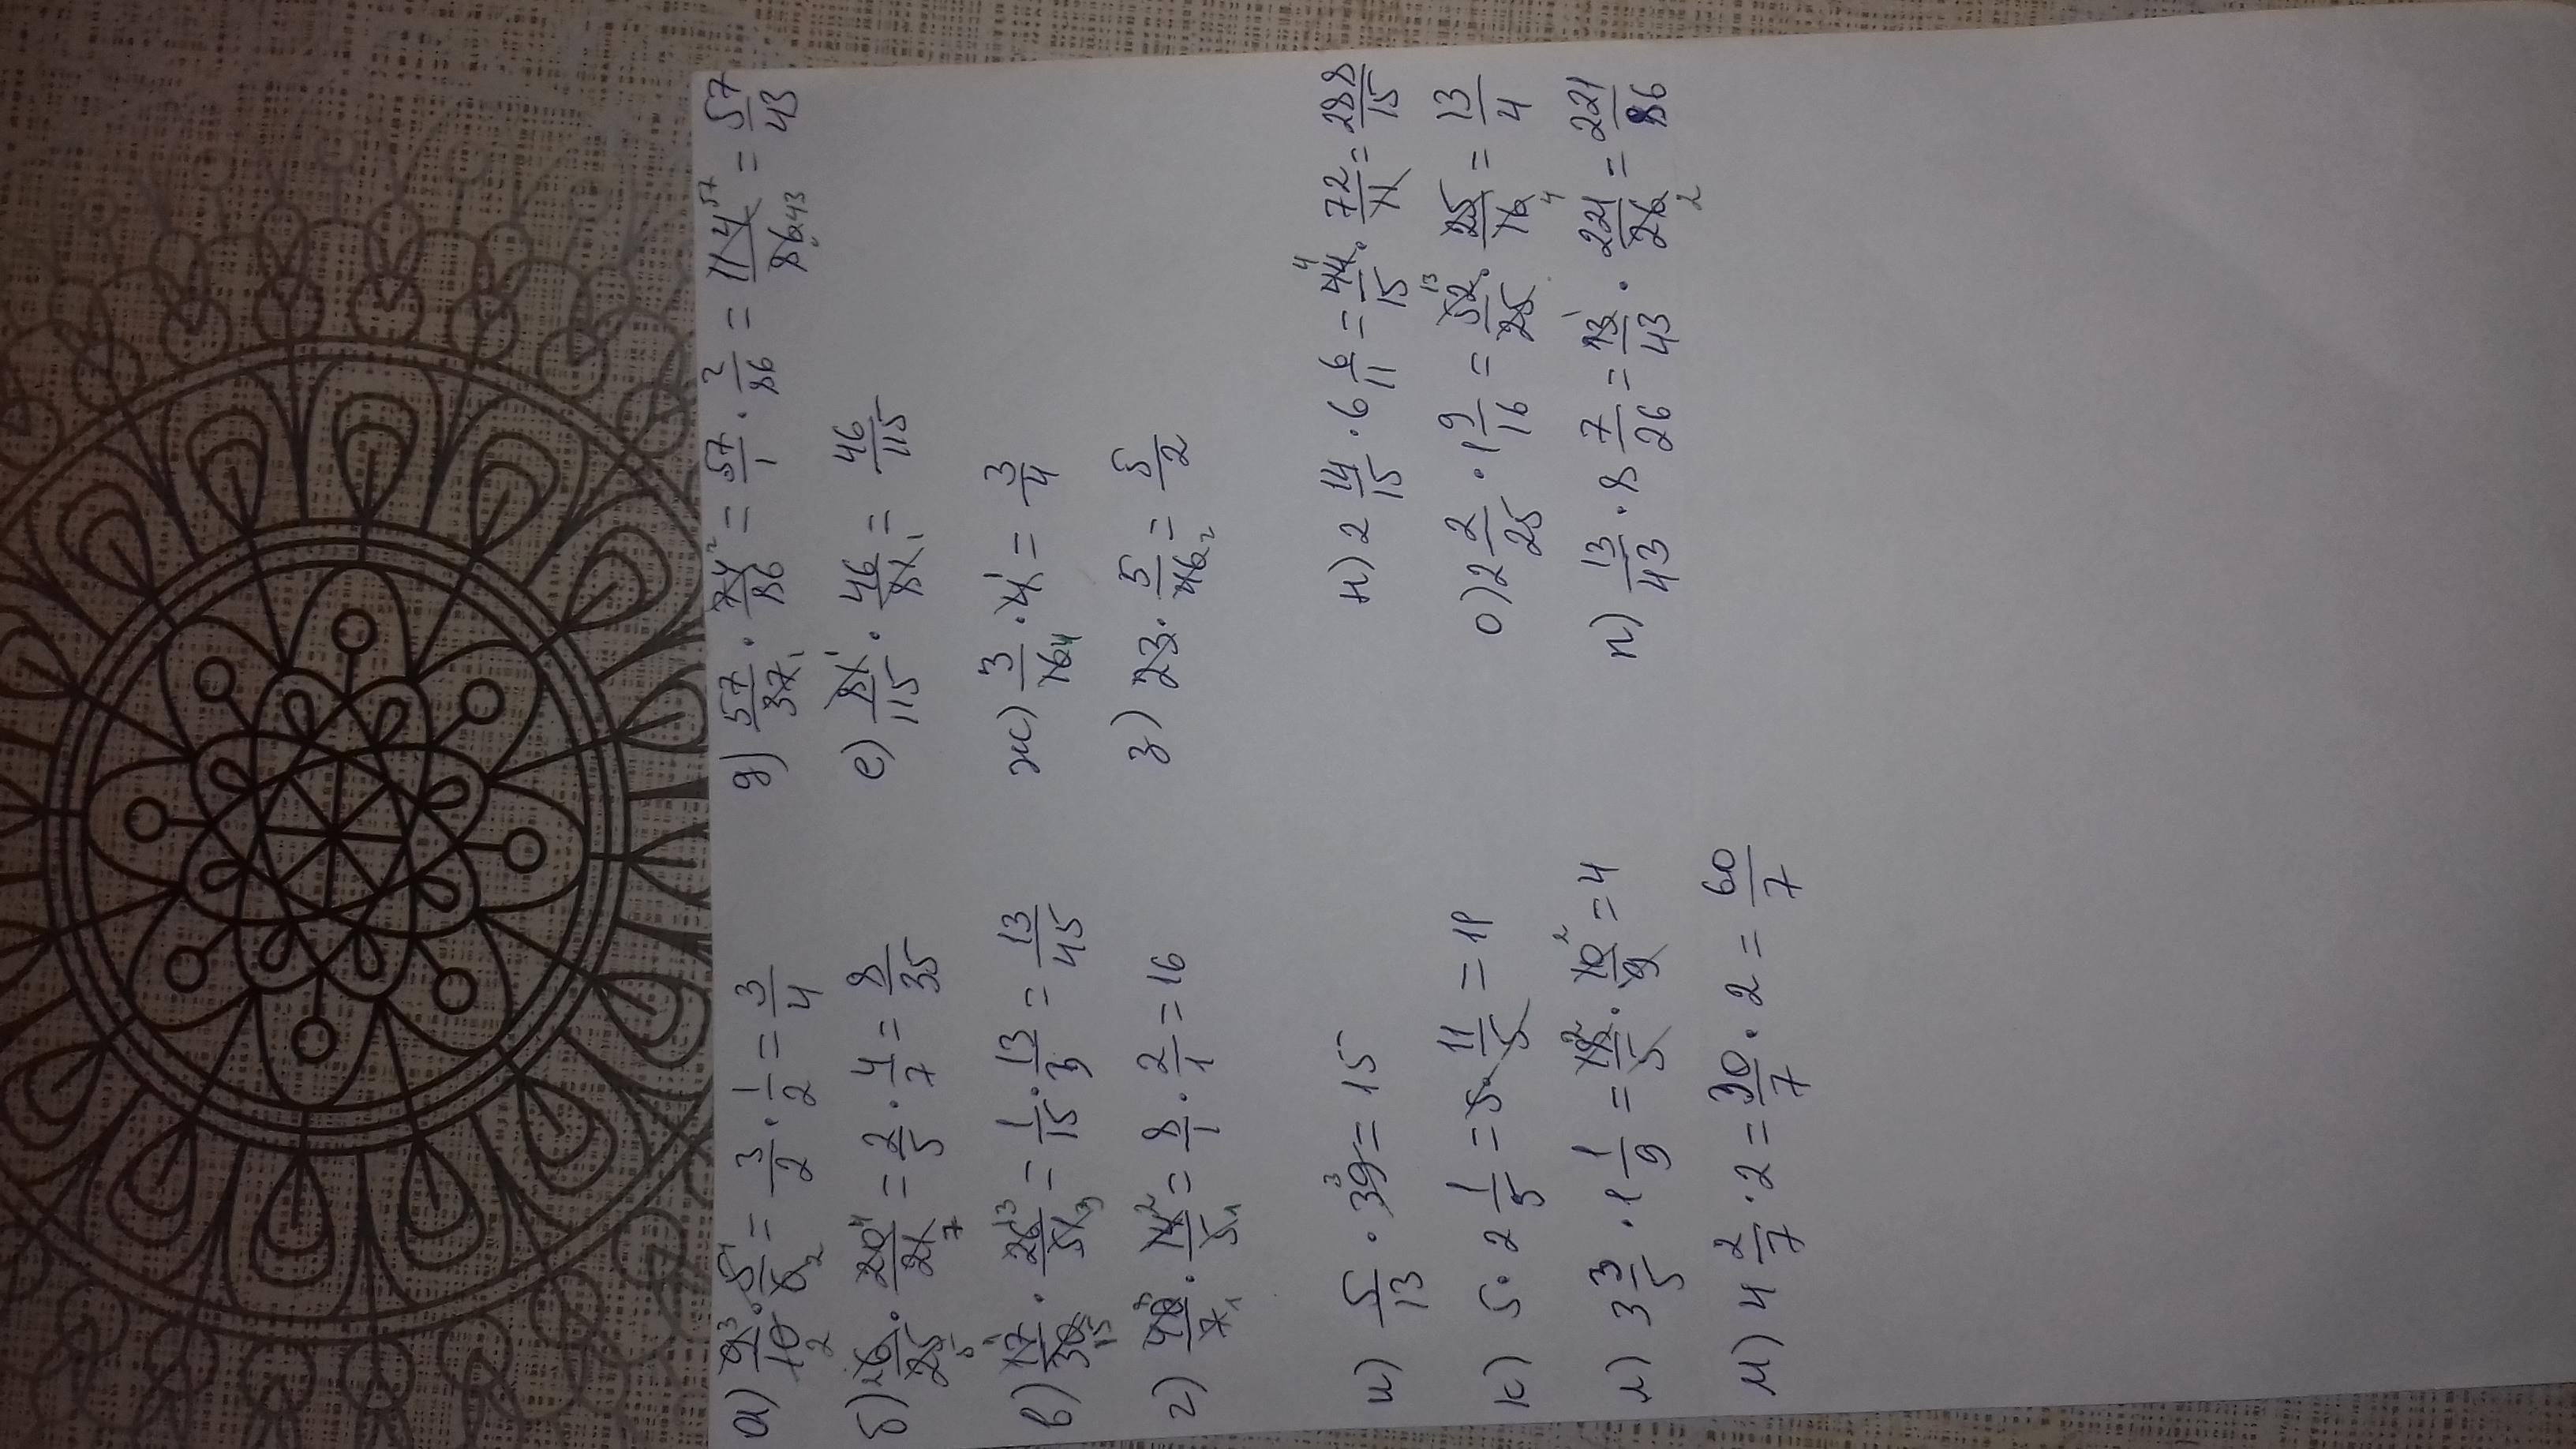 а) 9/10 · 5/6 = 3/2 · 1/2 = 3/4
б) 6/25 · 20/21 = 2/5 · 4/7 = 8/35
в) 17/30 · 26/51 = 1/15 · 13/3 = 13/45
г) 40/7 · 14/5 = 8/1 · 2/1 = 16
д) 57/37 · 74/86 = 57/1 · 2/86 = 114/86 = 57/43
е) 81/115 · 46/81 = 46/115
ж) 3/16 · 4 = 3/4
з) 23 · 5/46 = 5/2
и) 5/13 · 39 = 15
к) 5 · 2 1/5 = 5 · 11/5 = 11
л) 3 3/5 · 1 1/9 = 18/5 · 10/9 = 4
м) 4 2/7 · 2 = 30/7 · 2 = 60/7
н) 2 14/15 · 6 6/11 = 44/15 · 72/11 = 288/15
о) 2 2/25 · 1 9/16 = 52/25 · 25/16 = 13/4
п) 13/43 · 8 7/26 = 13/43 · 221/26 = 221/86